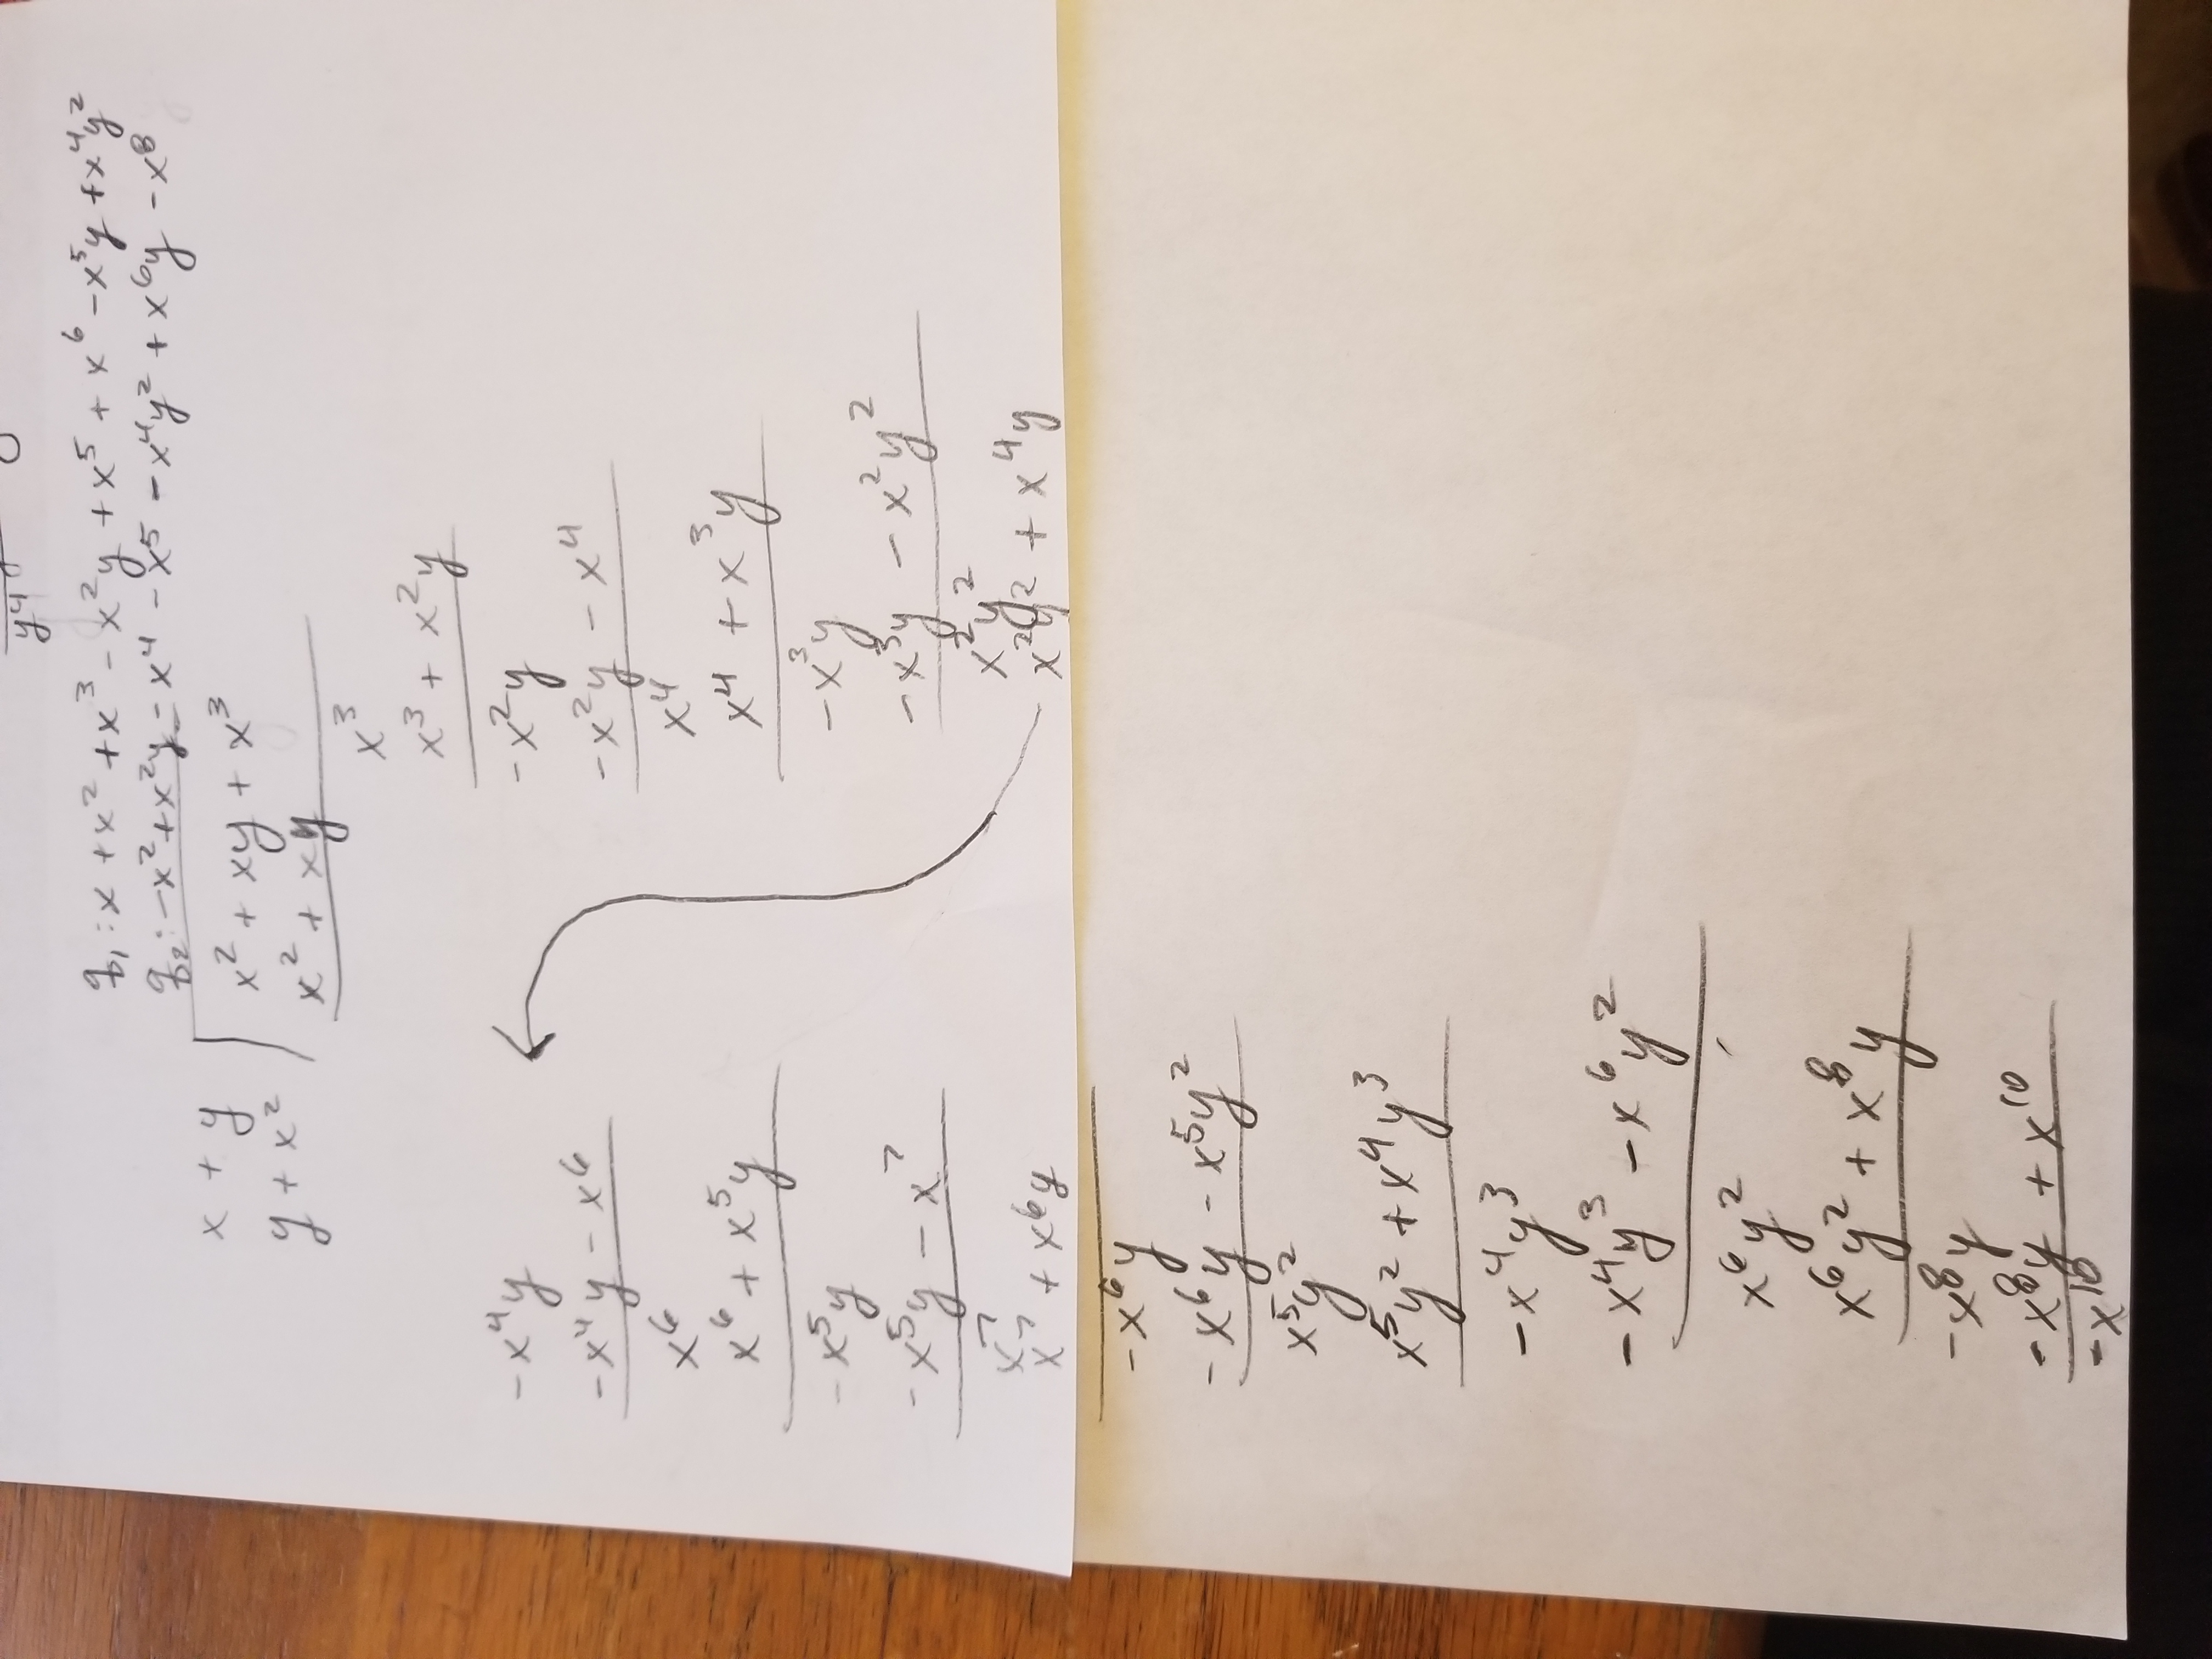 y⁴
q₁: x + x² + x³ - x²y + x⁵ + x⁶ - x⁵y + x⁴y²
q₂: -x² + x²y - x⁴ - x⁵ - x⁴y² + x⁶y - x⁸
x + y
y + x²
x² + xy + x³
x² + xy
x³
x³ + x²y
-x²y
-x²y - x⁴
x⁴
x⁴ + x³y
-x³y
-x³y - x²y²
x²y²
x²y² + x⁴y
-x⁴y
-x⁴y - x⁶
x⁶
x⁶ + x⁵y
-x⁵y
-x⁵y - x⁷
x⁷
x⁷ + x⁶y
-x⁶y
-x⁶y - x⁵y²
x⁵y²
x⁵y² + x⁴y³
-x⁴y³
-x⁴y³ - x⁶y²
x⁶y²
x⁶y² + x⁸y
-x⁸y
-x⁸y + x¹⁰
-x¹⁰